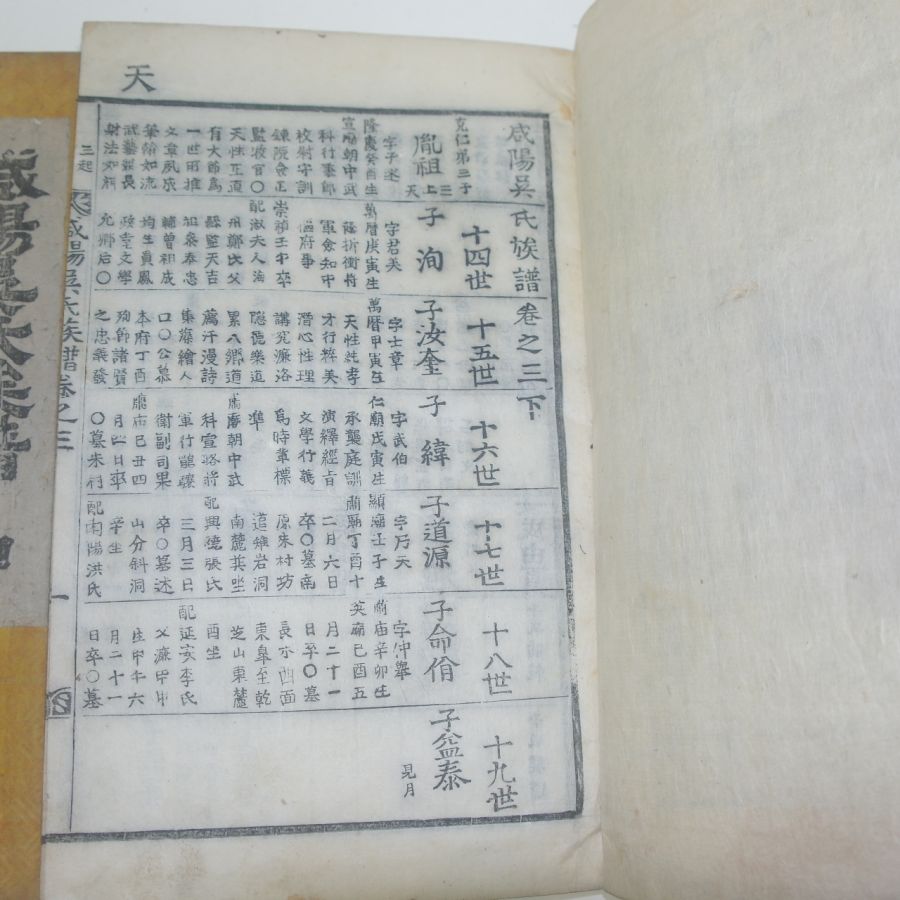 天
咸陽吳氏族譜卷之三下
克仁第三子
胤祖
三上天
字子述
隆慶癸酉生
宣廟朝中武
科行奉郎
校尉守訓
鍊院僉正
監牧官〇
天性正直
有大節爲
一世所推
文章夙成
筆翰如流
武藝並長
射法如神
十四世
子洵
字君美
萬曆庚寅生
折衝將
軍僉知中
樞府事
崇禎壬午卒
配淑夫人海
州鄭氏父
縣監天吉
祖參奉忠
輔曾祖成
均生員鳳
政章文學
允鄕后〇
十五世
子汝奎
字士章
萬曆甲寅生
天性純孝
才行粹美
潛心性理
講究濂洛
隱德樂道
累入鄕道
薦汗漫詩
集藻繪人
口〇公慕
本府丁酉
殉節諸賢
之忠義發
十六世
子緯
字武伯
仁廟戊寅生
承襲庭訓
演繹經旨
文學行義
爲時輩標
準
肅廟朝中武
科宣略將
軍行龍驤
衛副司果
肅廟己丑四
月四日卒
〇墓朱村
十七世
子道源
字巧天
顯廟壬子生
肅廟丁酉十
二月六日
卒〇墓南
原朱村坊
追雉岩洞
南麓巽坐
配興德張氏
三月三日
卒〇墓述
山分斜洞
辛坐
配南陽洪氏
十八世
子命佾
字仲擧
肅廟辛卯生
英廟己酉五
月二十一
日卒〇墓
長水西面
東皐至乾
芝山東麓
酉坐
配延安李氏
父濂甲申
生甲午六
月二十一
日卒〇墓
十九世
子益泰
見月
三起
咸陽吳氏族譜卷之三
一